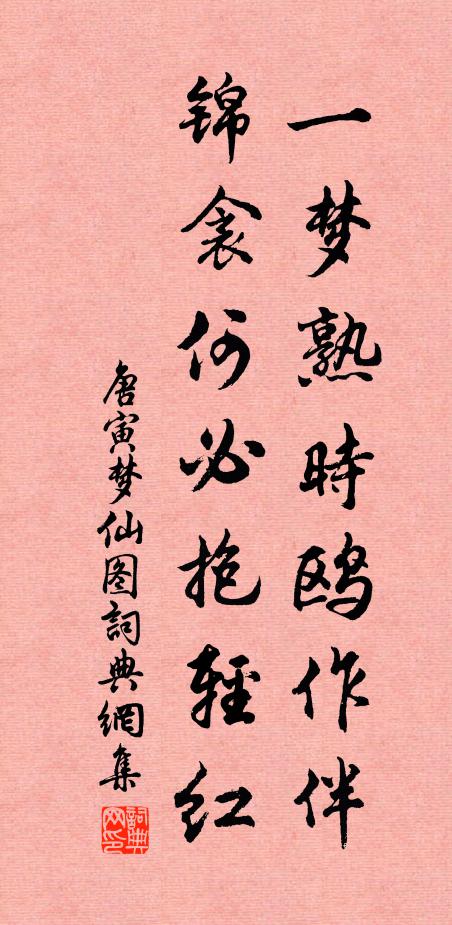 一梦熟時鸥作伴
锦衾何必抱輕红
唐寅梦仙图詞典網集
詞典网印